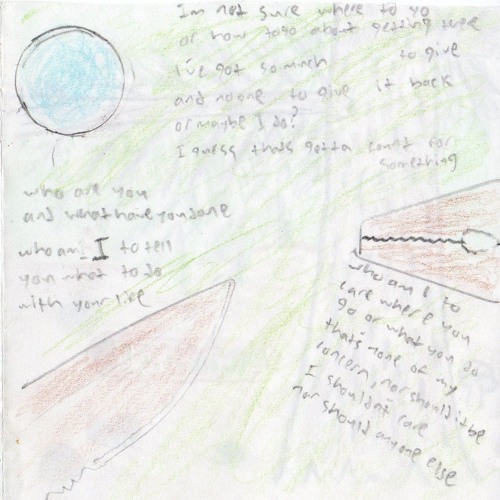 Im not sure where to go
or how togo about getting there
I've got so much to give
and no one to give it back
or maybe I do?
I guess thats gotta count for
something
who are you
and what have you done
who am I to tell
you what to do
with your life
who am I to
care where you
go or what you do
that's none of my
concern, nor should it be
I shouldn't care
nor should anyone else